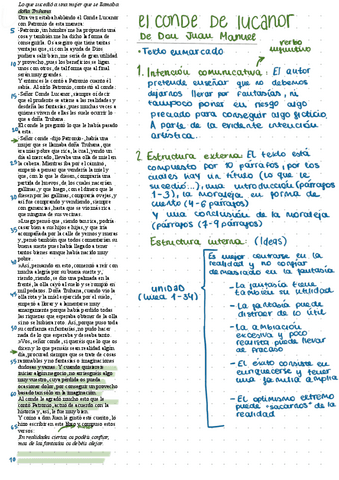 Lo que sucedió a una mujer que se llamaba
doña Truhana
Otra vez estaba hablando el Conde Lucanor
con Patronio de esta manera:
-Patronio, un hombre me ha propuesto una
cosa y también me ha dicho la forma de
conseguirla. Os aseguro que tiene tantas
ventajas que, si con la ayuda de Dios
pudiera salir bien, me sería de gran utilidad
y provecho, pues los beneficios se ligan
unos con otros, de tal forma que al final
serán muy grandes.
Y entonces le contó a Patronio cuanto él
sabía. Al oírlo Patronio, contestó al conde:
-Señor Conde Lucanor, siempre oí decir
que el prudente se atiene a las realidades y
desdeña las fantasías, pues muchas veces a
quienes viven de ellas les suele ocurrir lo
que a doña Truhana.
El conde le preguntó lo que le había pasado
a esta.
-Señor conde -dijo Patronio-, había una
mujer que se llamaba doña Truhana, que
era más pobre que rica, la cual, yendo un
día al mercado, llevaba una olla de miel en
la cabeza. Mientras iba por el camino,
empezó a pensar que vendería la miel y
que, con lo que le diesen, compraría una
partida de huevos, de los cuales nacerían
gallinas, y que luego, con el dinero que le
diesen por las gallinas, compraría ovejas, y
así fue comprando y vendiendo, siempre
con ganancias, hasta que se vio más rica
que ninguna de sus vecinas.
»Luego pensó que, siendo tan rica, podría
casar bien a sus hijos e hijas, y que iría
acompañada por la calle de yernos y nueras
y, pensó también que todos comentarían su
buena suerte pues había llegado a tener
tantos bienes aunque había nacido muy
pobre.
»Así, pensando en esto, comenzó a reír con
mucha alegría por su buena suerte y,
riendo, riendo, se dio una palmada en la
frente, la olla cayó al suelo y se rompió en
mil pedazos. Doña Truhana, cuando vio la
olla rota y la miel esparcida por el suelo,
empezó a llorar y a lamentarse muy
amargamente porque había perdido todas
las riquezas que esperaba obtener de la olla
si no se hubiera roto. Así, porque puso toda
su confianza en fantasías, no pudo hacer
nada de lo que esperaba y deseaba tanto.
»Vos, señor conde, si queréis que lo que os
dicen y lo que pensáis sean realidad algún
día, procurad siempre que se trate de cosas
razonables y no fantasías o imaginaciones
dudosas y vanas. Y cuando quisiereis
iniciar algún negocio, no arriesguéis algo
muy vuestro, cuya pérdida os pueda
ocasionar dolor, por conseguir un provecho
basado tan sólo en la imaginación.
Al conde le agradó mucho esto que le
contó Patronio, actuó de acuerdo con la
historia y, así, le fue muy bien.
Y como a don Juan le gustó este cuento, lo
hizo escribir en este libro y compuso estos
versos:
En realidades ciertas os podéis confiar,
mas de las fantasías os debéis alejar.
el conde de lucanor
De Don Juan Manuel
verbo
subjuntivo
•Texto enmarcado
1. Intención comunicativa: El autor
pretende enseñar que no debemos
dejarnos llevar por fantasías, ni
tampoco poner en riesgo algo
preciado para conseguir algo ficticio.
A parte de la evidente intención
artística.
2. Estructura externa: El texto está
compuesto por 10 párrafos, por los
cuales hay un título (lo que le
sucedió...) una introducción (párrafos
1-3), la moraleja, en forma de
cuento (4-6 párrafos)
y una conclusión de la moraleja
(párrafos (7-9 párrafos)
Estructura interna: (Ideas)
Es mejor centrarse en la
realidad y no confiar
demasiado en la fantasía
unidad
(línea 1-34)
- La fantasía tiene
también su utilidad
- La fantasía puede
distraer de lo útil
- La ambición
excesiva y poco
realista puede llevar
al fracaso
- El éxito consiste en
enriquecerse y tener
una familia amplia
- El optimismo extremo
puede "sacarnos" de la
realidad